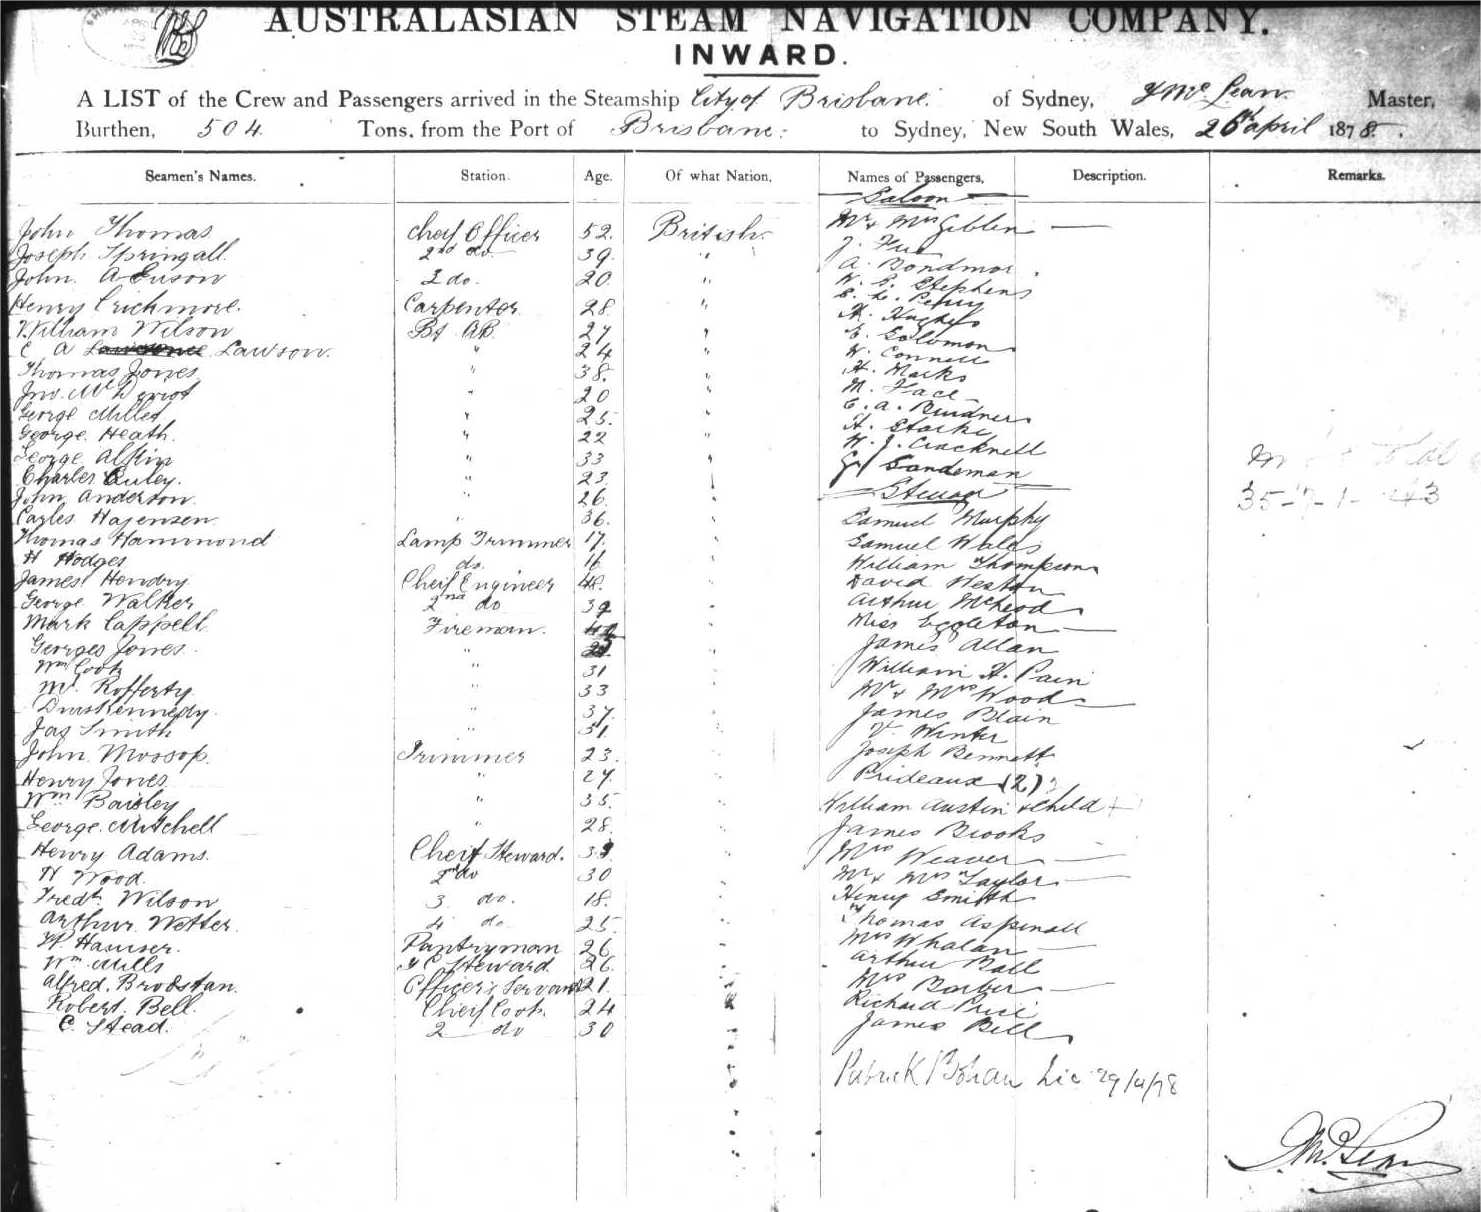 AUSTRALASIAN STEAM NAVIGATION COMPANY.
INWARD.
A LIST of the Crew and Passengers arrived in the Steamship City of Brisbane. of Sydney, J Mc Lean Master,
Burthen, 504 Tons, from the Port of Brisbane to Sydney, New South Wales, 26th april 1878.
Seamen's Names. Station. Age. Of what Nation. Names of Passengers, Description. Remarks.
Saloon
John Thomas Cheif Officer 52. British Mr & Mrs Giblin
Joseph Springall 2nd do 39. " J.
John 3 do. 20 " A.
Henry Crichmore. Carpenter 28. " W. Stephens
William Wilson AB. 27 " H. Hughes
C A Lawson. " 24 " E. Solomon
Thomas Jones " 38. " W. Connell
Jno. Mc " 20 " H. Marks
George Miller " 25. " M.
George Heath. " 22 " C. A.
George " 33 " H. Starke
Charles " 23 " W. J. Cracknell
John Anderson. " 26. " G Sandeman
Steerage
Carles Hagensen " 36. Samuel Murphy
Thomas Hammond Lamp Trimmer 17. Samuel Wales
H Hodges do. 16 William Thompson
James Hendry Cheif Engineer 48. David Weston
George Walker 2nd do 39 Arthur McLeod
Mark Cappell Fireman. Miss Eggleton
Georges Jones. " James Allan
Wm Cook " 31 William H. Pain
Rofferty " 33 Mr & Mrs Wood
Kennedy. " 37. James Blain
Jas Smith " Winter
John Mossop. Trimmer 23. Joseph Bennett
Henry Jones " 27. Prideaux (2)
Wm Baisley " 35. William Austin & Child
George. Mitchell " 28. James Brooks
Henry Adams. Cheif Steward. Mrs Weaver
H Wood. 2nd do 30 Mr & Mrs Taylor
Fredk Wilson 3 do. 18. Henry Smith
Arthur Wetter. 4 do 25. Thomas Aspinall
Hauser. Pantryman 26 Mrs Whalan
Wm Mills Steward 26. Arthur Ball
Alfred. Officer's Servant 21. Mrs Barber
Robert. Bell. Cheif Cook 24 Richard Price
C. Stead. 2 do 30 James Bell
Patrick Bohan Lic 29/4/78
J McLean